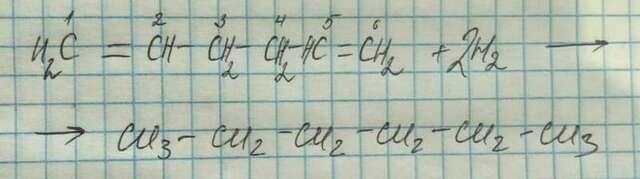 H₂C¹ = CH² – CH₂³ – CH₂⁴ – HC⁵ = CH₂⁶ + 2H₂ →
→ CH₃ – CH₂ – CH₂ – CH₂ – CH₂ – CH₃